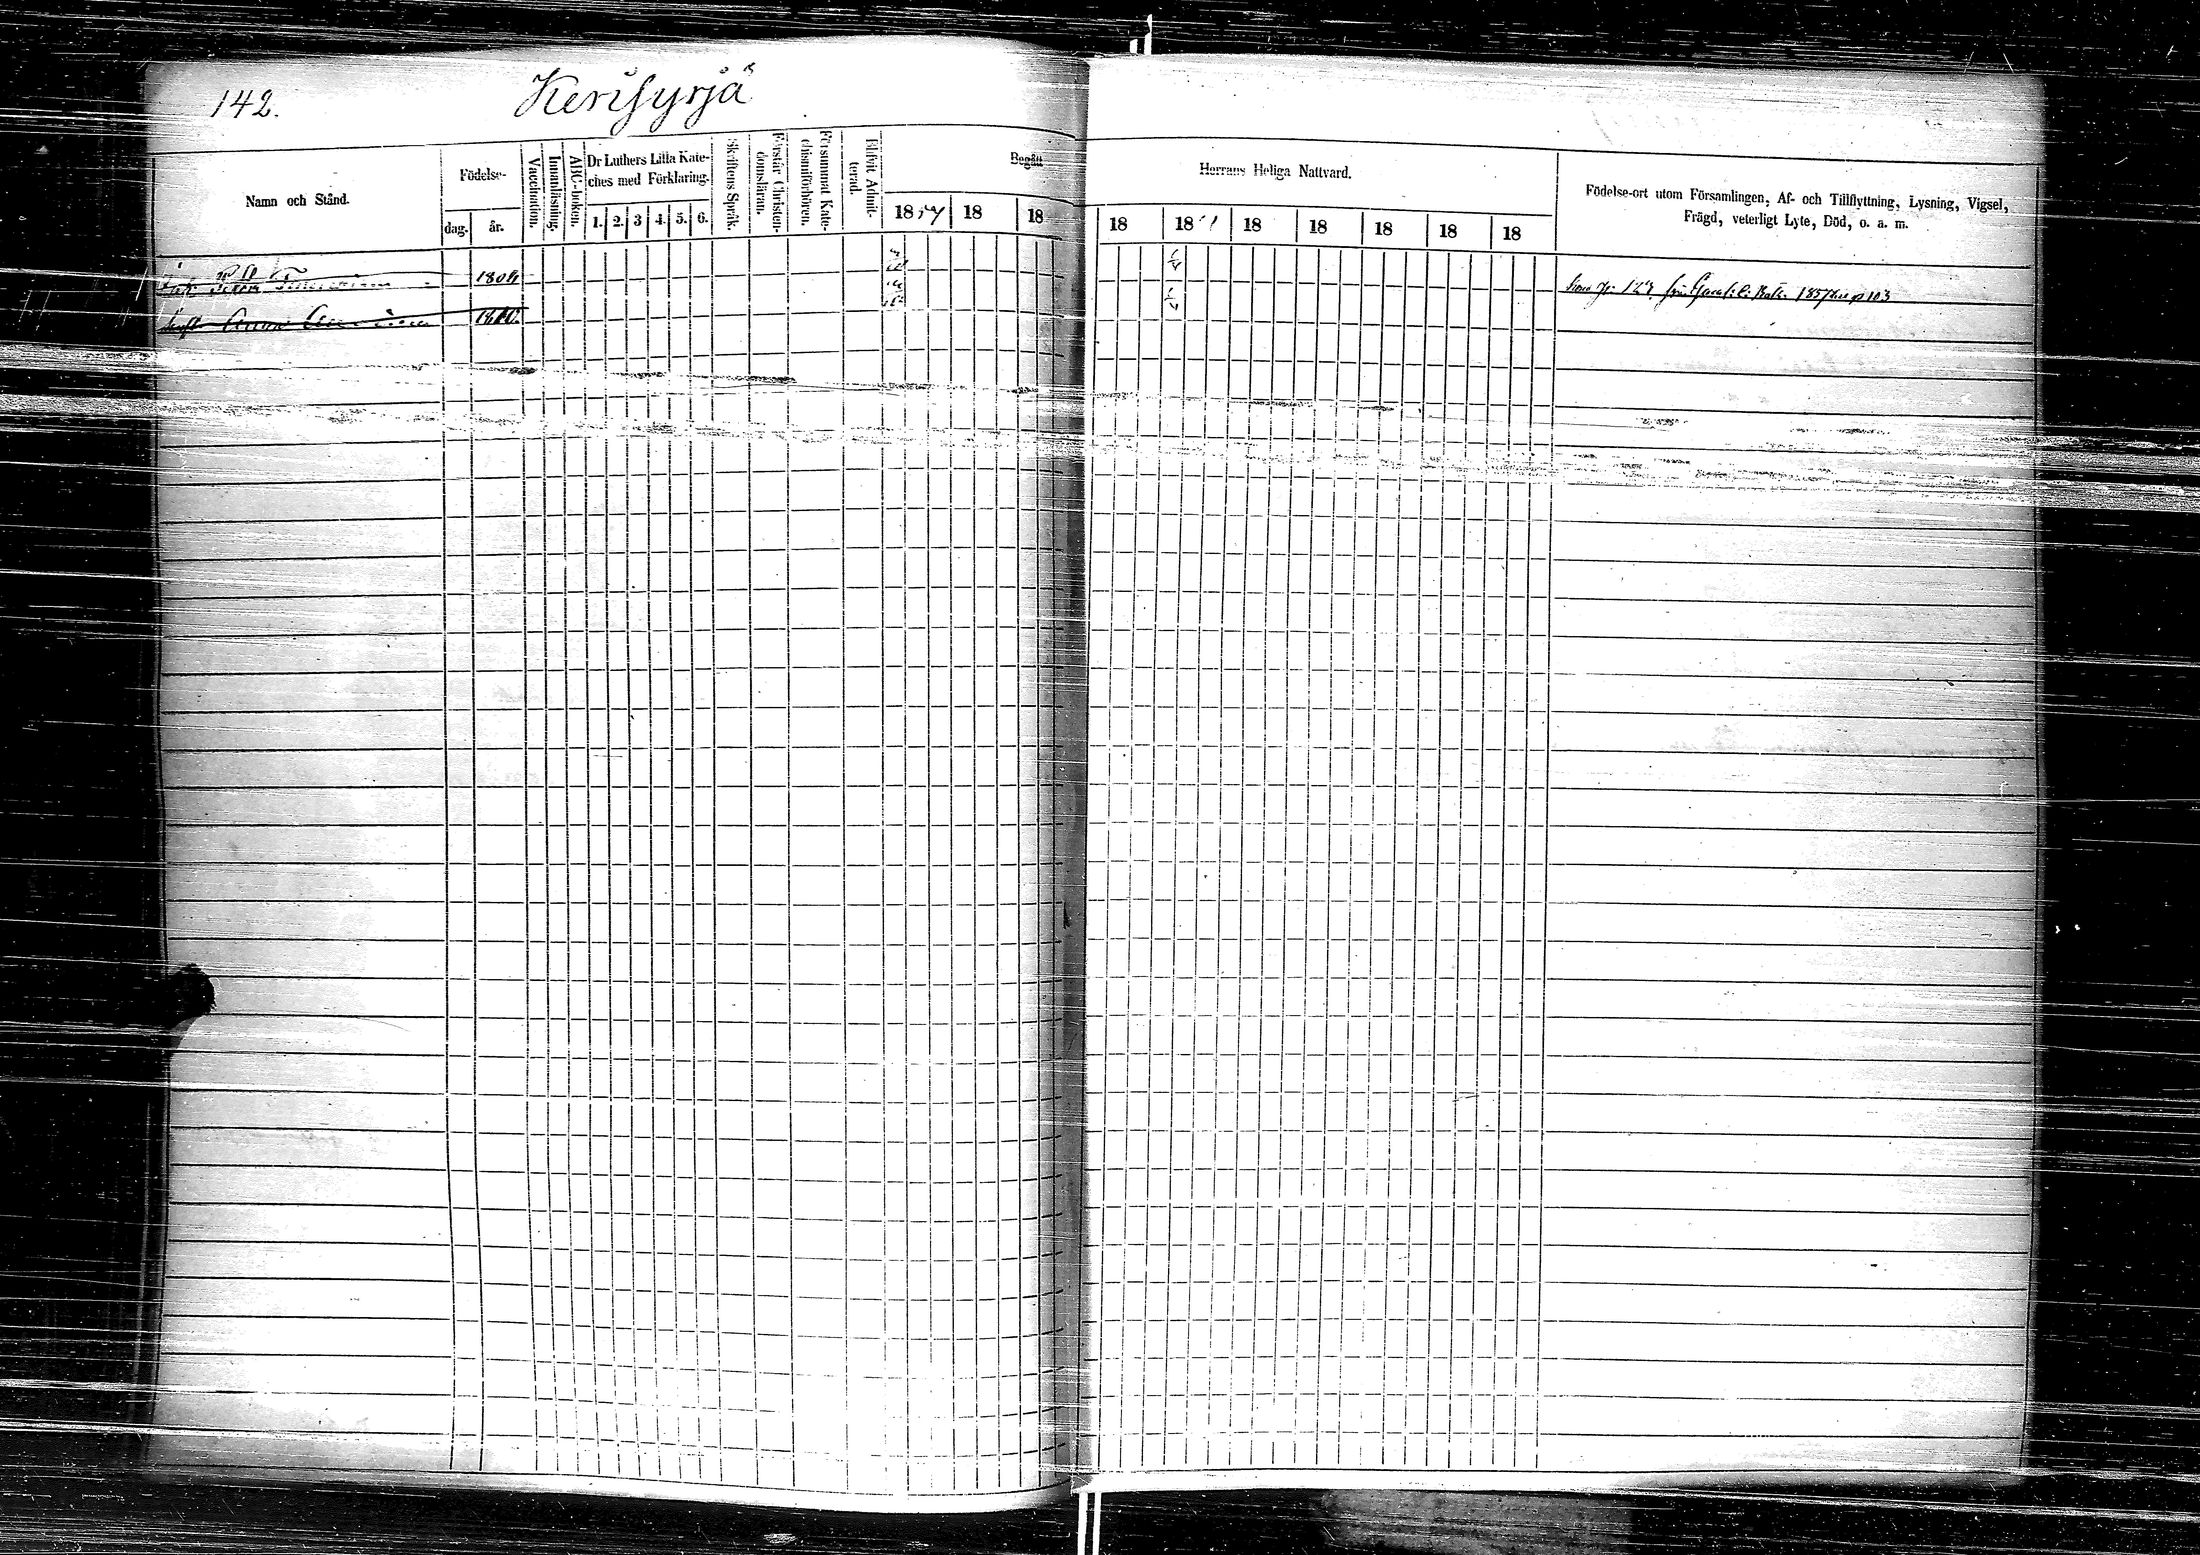 142.
Kerisyrjä
Namn och Stånd.
Födelse-
dag.
år.
Vaccination.
Innanläsning.
ABC-boken.
Dr Luthers Lilla Kate-
ches med Förklaring.
1. 2. 3 4. 5. 6.
Skriftens Språk.
Förstår Christen-
domsläran.
Försummat Kate-
chismiförhören.
Blifvit Admit-
terad.
Begått
18 18 18
Herrans Heliga Nattvard.
18 18 18 18 18 18 18
Födelse-ort utom Församlingen, Af- och Tillflyttning, Lysning, Vigsel,
Frägd, veterligt Lyte, Död, o. a. m.
1804
123. 1857 103
Anna
1810.